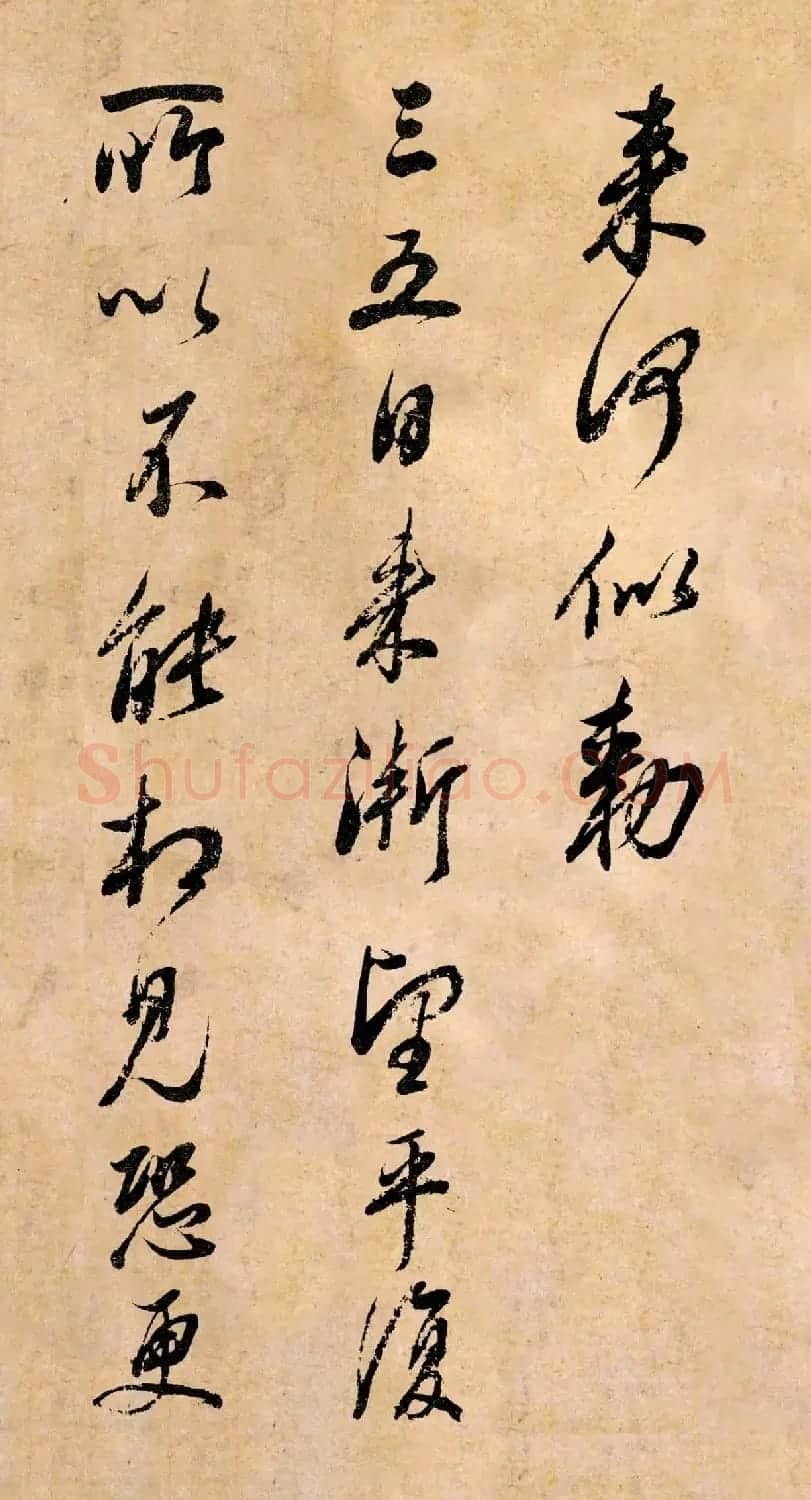 来何似勅
三五日来漸望平復
所以不能相見恐更
Shufaziliao.COM